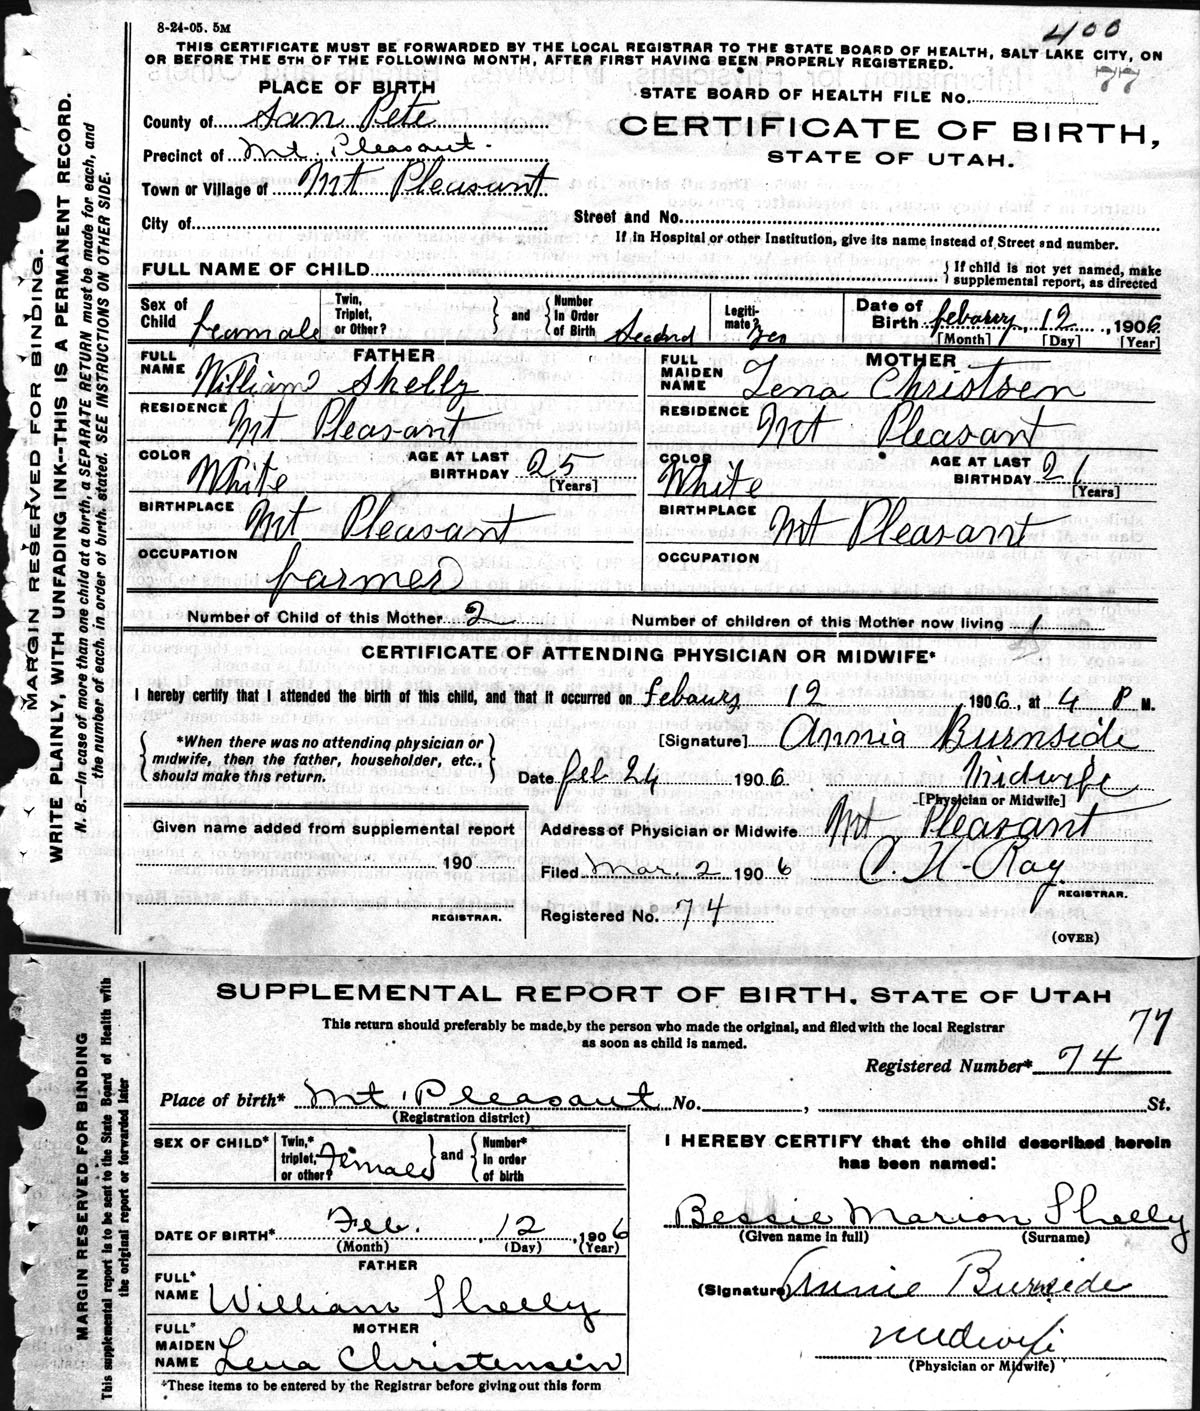 8-24-05. 5M
400
THIS CERTIFICATE MUST BE FORWARDED BY THE LOCAL REGISTRAR TO THE STATE BOARD OF HEALTH, SALT LAKE CITY, ON
OR BEFORE THE 5TH OF THE FOLLOWING MONTH, AFTER FIRST HAVING BEEN PROPERLY REGISTERED.
77
PLACE OF BIRTH
STATE BOARD OF HEALTH FILE No.
County of San Pete
CERTIFICATE OF BIRTH,
STATE OF UTAH.
Precinct of Mt. Pleasant.
Town or Village of Mt Pleasant
City of
Street and No.
If in Hospital or other Institution, give its name instead of Street and number.
FULL NAME OF CHILD
If child is not yet named, make
supplemental report, as directed
Sex of Child feamale
Twin, Triplet, or Other?
and
Number In Order of Birth Second
Legiti-mate? Yes
Date of Birth febaury, 12, 1906
[Month] [Day] [Year]
FATHER
FULL NAME William Shelly
RESIDENCE Mt Pleasant
COLOR White
AGE AT LAST BIRTHDAY 25
[Years]
BIRTHPLACE Mt Pleasant
OCCUPATION farmer
MOTHER
FULL MAIDEN NAME Lena Christsen
RESIDENCE Mt Pleasant
COLOR White
AGE AT LAST BIRTHDAY 21
[Years]
BIRTHPLACE Mt Pleasant
OCCUPATION
Number of Child of this Mother 2
Number of children of this Mother now living 1
CERTIFICATE OF ATTENDING PHYSICIAN OR MIDWIFE*
I hereby certify that I attended the birth of this child, and that it occurred on Febaury 12, 1906, at 4 P M.
*When there was no attending physician or
midwife, then the father, householder, etc.,
should make this return.
[Signature] Annia Burnside
Date feb 24 1906.
Midwife
[Physician or Midwife]
Given name added from supplemental report
190
REGISTRAR.
Address of Physician or Midwife Mt Pleasant
Filed Mar. 2 1906
C. H. Ray
REGISTRAR.
Registered No. 74
(OVER)
MARGIN RESERVED FOR BINDING.
WRITE PLAINLY, WITH UNFADING INK---THIS IS A PERMANENT RECORD.
N. B.—In case of more than one child at a birth, a SEPARATE RETURN must be made for each, and
the number of each, in order of birth, stated. SEE INSTRUCTIONS ON OTHER SIDE.
SUPPLEMENTAL REPORT OF BIRTH, STATE OF UTAH
This return should preferably be made, by the person who made the original, and filed with the local Registrar
as soon as child is named.
77
Registered Number* 74
Place of birth* Mt. Pleasant No. , St.
(Registration district)
SEX OF CHILD*
Twin,* triplet, or other? Female
and
Number* In order of birth
DATE OF BIRTH* Feb. , 12 , 1906
(Month) (Day) (Year)
FATHER
FULL* NAME William Shelly
MOTHER
FULL* MAIDEN NAME Lena Christensen
*These items to be entered by the Registrar before giving out this form
I HEREBY CERTIFY that the child described herein
has been named:
Bessie Marion Shelly
(Given name in full) (Surname)
(Signature) Annie Burnside
Midwife
(Physician or Midwife)
MARGIN RESERVED FOR BINDING
This supplemental report is to be sent to the State Board of Health with
the original report or forwarded later